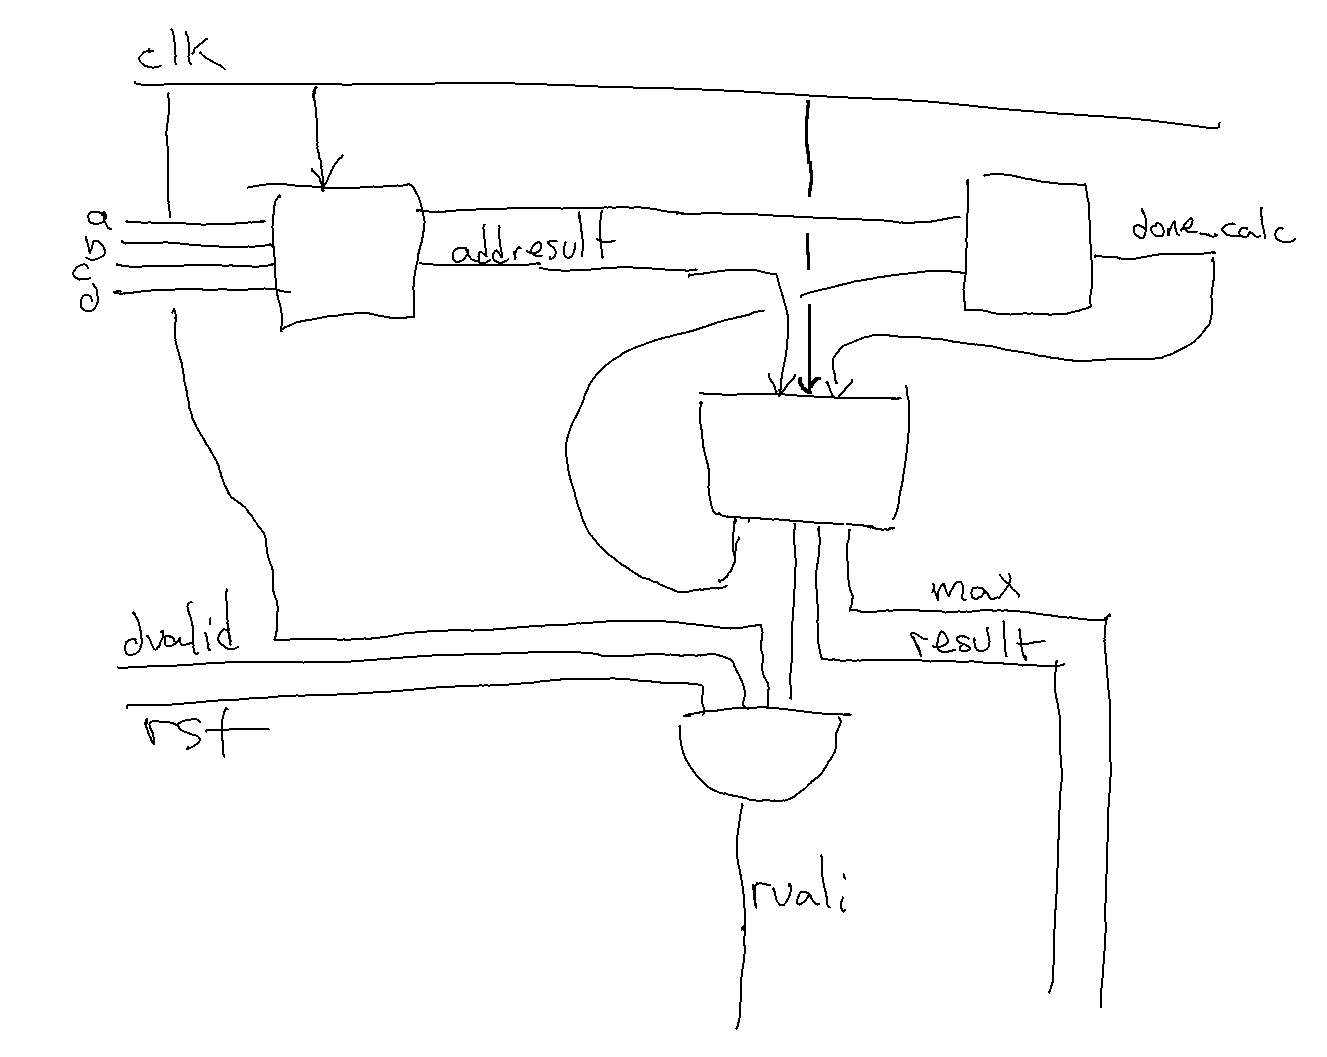 clk
a
b
c
d
addresult
done_calc
max
result
dvalid
rst
rvali